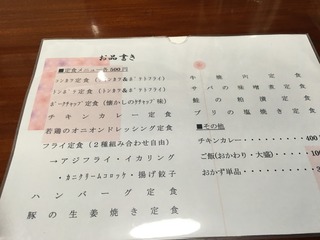 お品書き
■定食メニュー各500円
トンカツ定食(トンカツ&ポテトフライ)
ポークチャップ定食(懐かしのケチャップ味)
チキンカレー定食
若鶏のオニオンドレッシング定食
フライ定食(2種組み合わせ自由)
→アジフライ・イカリング
・カニクリームコロッケ・揚げ餃子
ハンバーグ定食
豚の生姜焼き定食
牛焼肉定食
サバの味噌煮定食
鮭の粕漬定食
ブリの塩焼き定食
■その他
チキンカレー 400
ご飯(おかわり・大盛) 100
おかず単品